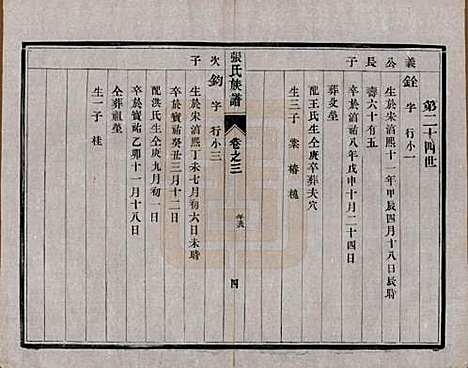 第二十四世
義公長子
銓 字 行小一
生於宋淯熙十一年甲辰四月十八日辰時
壽六十有五
卒於寶祐八年戊申十月二十四日
葬父塋
配王氏生仝庚卒葬夫穴
生三子 棠 椿 槐
張氏族譜
卷之三
四
次子
鈞 字 行小三
生於宋淯熙丁未七月初六日未時
卒於寶祐癸丑三月十二日
配洪氏生仝庚九月初一日
卒於寶祐乙卯十一月十八日
仝葬祖塋
生一子 桂